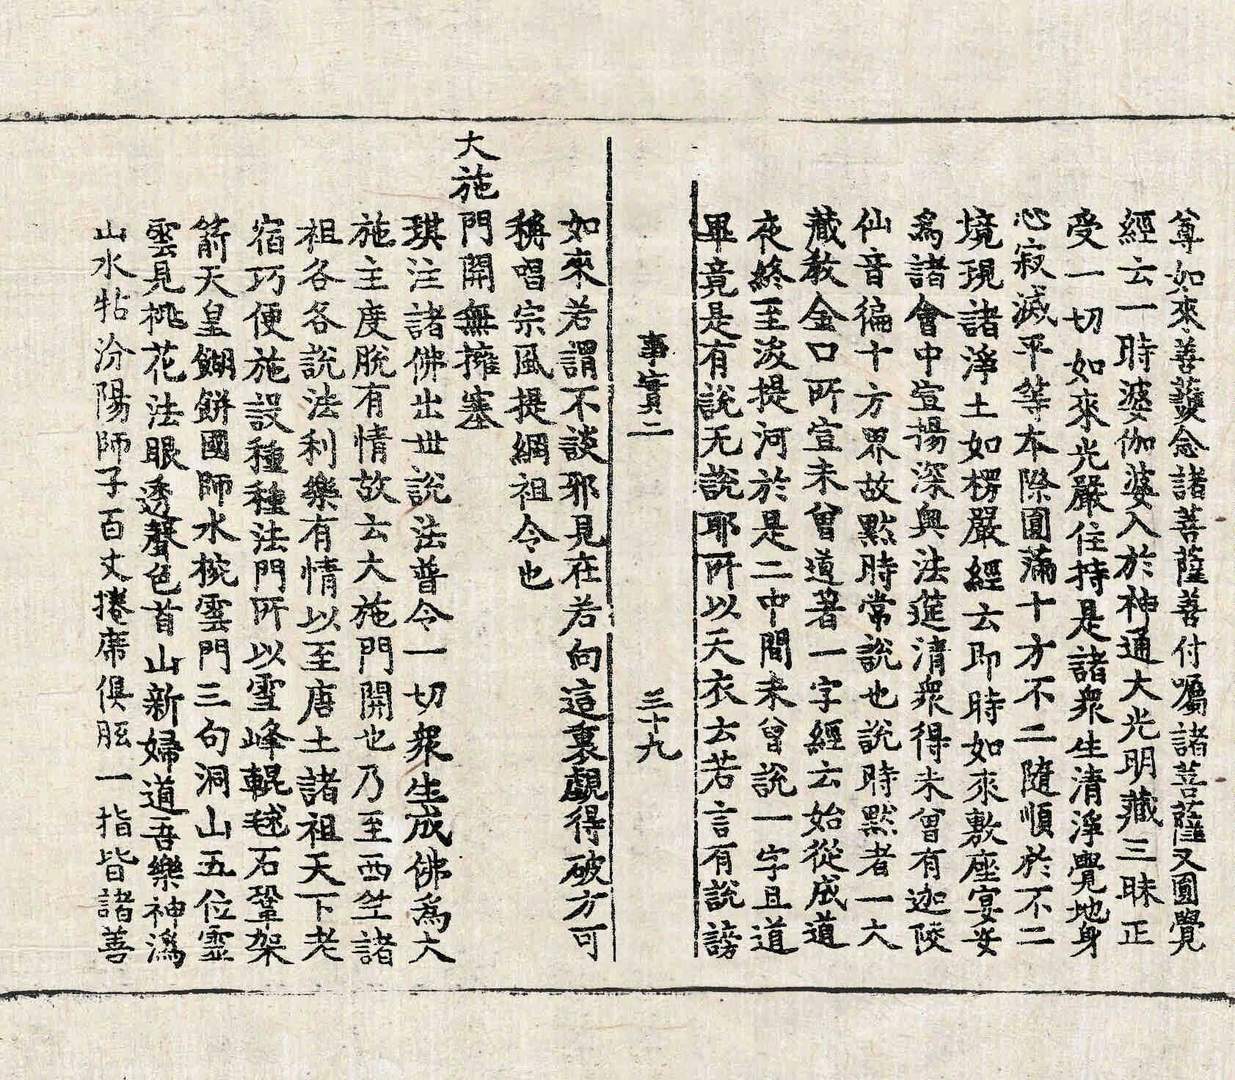 尊如來善護念諸菩薩善付囑諸菩薩又圓覺
經云一時婆伽婆入於神通大光明藏三昧正
受一切如來光嚴住持是諸衆生清淨覺地身
心寂滅平等本際圓滿十方不二隨順於不二
境現諸淨土如楞嚴經云即時如來敷座宴安
爲諸會中宣揚深奧法筵清衆得未曾有迦陵
仙音徧十方界故黙時常說也說時黙者一大
藏教金口所宣未曾道著一字經云始從成道
夜終至泼提河於是二中間未曾說一字且道
畢竟是有說无說耶所以天衣云若言有說謗
事實二　三十九
如來若謂不談邪見在若向這裏覰得破方可
稱唱宗風提綱祖令也
大施門開無擁塞
琪注諸佛出丗說法普令一切衆生成佛爲大
施主度脫有情故云大施門開也乃至西竺諸
祖各各說法利樂有情以至唐土諸祖天下老
宿巧便施設種種法門所以雪峰輥毬石鞏架
箭天皇餬餅國師水椀雲門三句洞山五位靈
雲見桃花法眼透聲色首山新婦道吾樂神潙
山水牯汾陽師子百丈捲席俱胝一指皆諸善